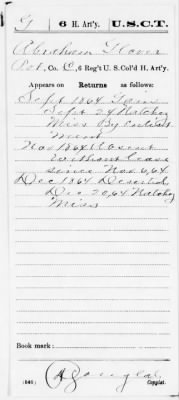 G 6 H. Art'y. U.S.C.T.
Abraham Glover
Pvt, Co. C, 6 Reg't U. S. Col'd H. Art'y.
Appears on Returns as follows:
Sept 1864 Gain
Sept 24 Natchez
Miss By Enlist
ment
Nov 1864 Absent
without leave
since Nov 6, 64
Dec 1864 Deserted
Dec 20, 64 Natchez
Miss
Book mark:
(546) Copyist.